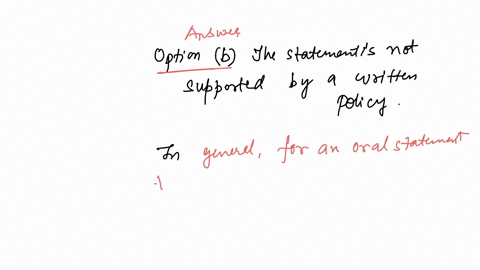 Answer
Option (b) The statement is not
supported by a written
policy.
In general, for an oral statement